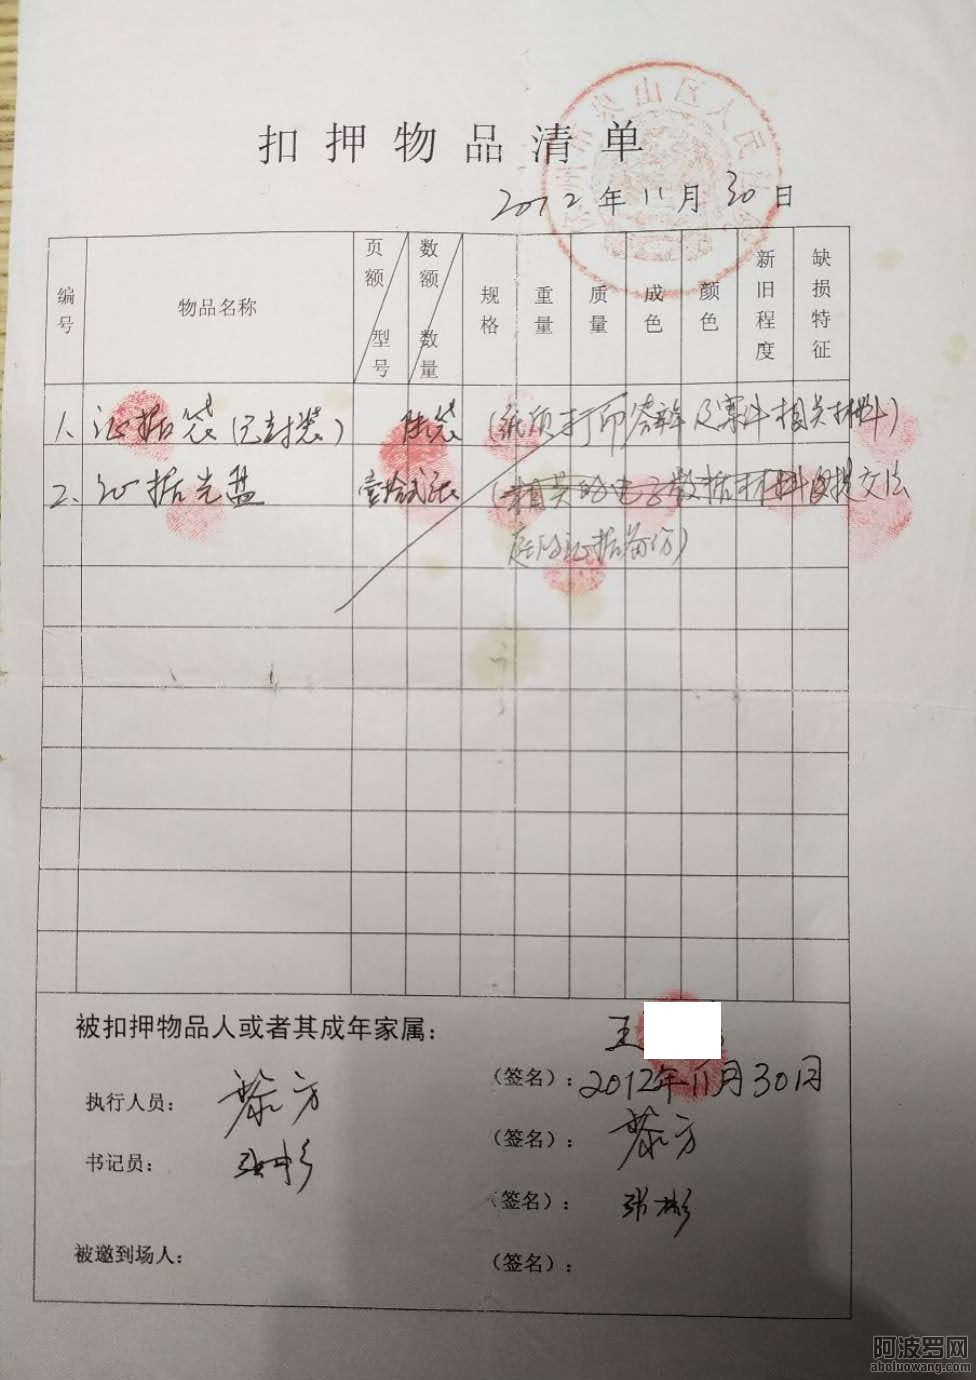 扣押物品清单
泉山区人民
2012年11月30日
编号 物品名称 页额 型号 数额 数量 规格 重量 质量 成色 颜色 新旧程度 缺损特征
1、证据袋（已封装） 陆袋 （纸质打印答辩及案件相关材料）
2、证据光盘 壹拾贰张 （相关的电子数据材料及提交法
庭的证据备份）
被扣押物品人或者其成年家属： 王
（签名）：2012年11月30日
执行人员：
（签名）：
书记员：张彬
（签名）：张彬
被邀到场人： （签名）：
阿波罗网
aboluowang.com